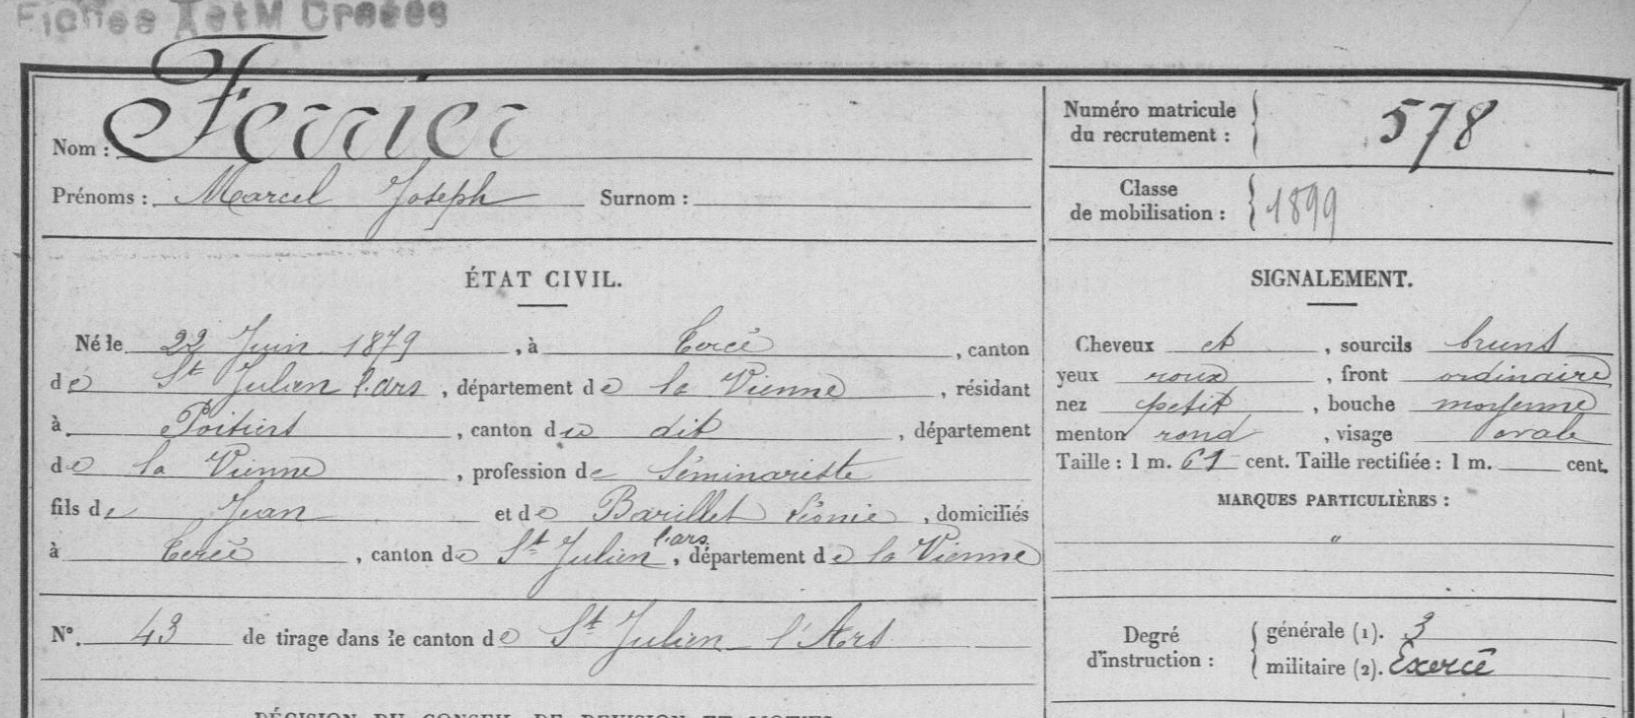 Fiches X et M Créées
Nom : Ferrier
Prénoms : Marcel Joseph Surnom :
Numéro matricule
du recrutement : 578
Classe
de mobilisation : 1899
ÉTAT CIVIL.
Né le 22 Juin 1879, à Tercé, canton
de St Julien l'ars, département de la Vienne, résidant
à Poitiers, canton du dit, département
de la Vienne, profession de Séminariste
fils de Jean et de Barillet Léonie, domiciliés
à Tercé, canton de St Julien l'ars, département de la Vienne
N°. 43 de tirage dans le canton de St Julien l'Ars
SIGNALEMENT.
Cheveux et, sourcils bruns
yeux roux, front ordinaire
nez petit, bouche moyenne
menton rond, visage ovale
Taille : 1 m. 61 cent. Taille rectifiée : 1 m. cent.
MARQUES PARTICULIÈRES :
"
Degré
d'instruction :
générale (1). 3
militaire (2). Exercé
DÉCISION DU CONSEIL DE REVISION ET MOTIFS